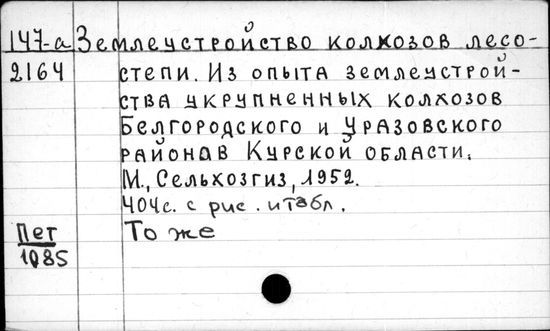 147-а Землеустройство колхозов лесо-
2164 степи. Из опыта землеустрой-
ства укрупненных колхозов
Белгородского и Уразовского
районав Курской области.
М., Сельхозгиз, 1952.
404с. с рис. и табл.
Пет То же
1085